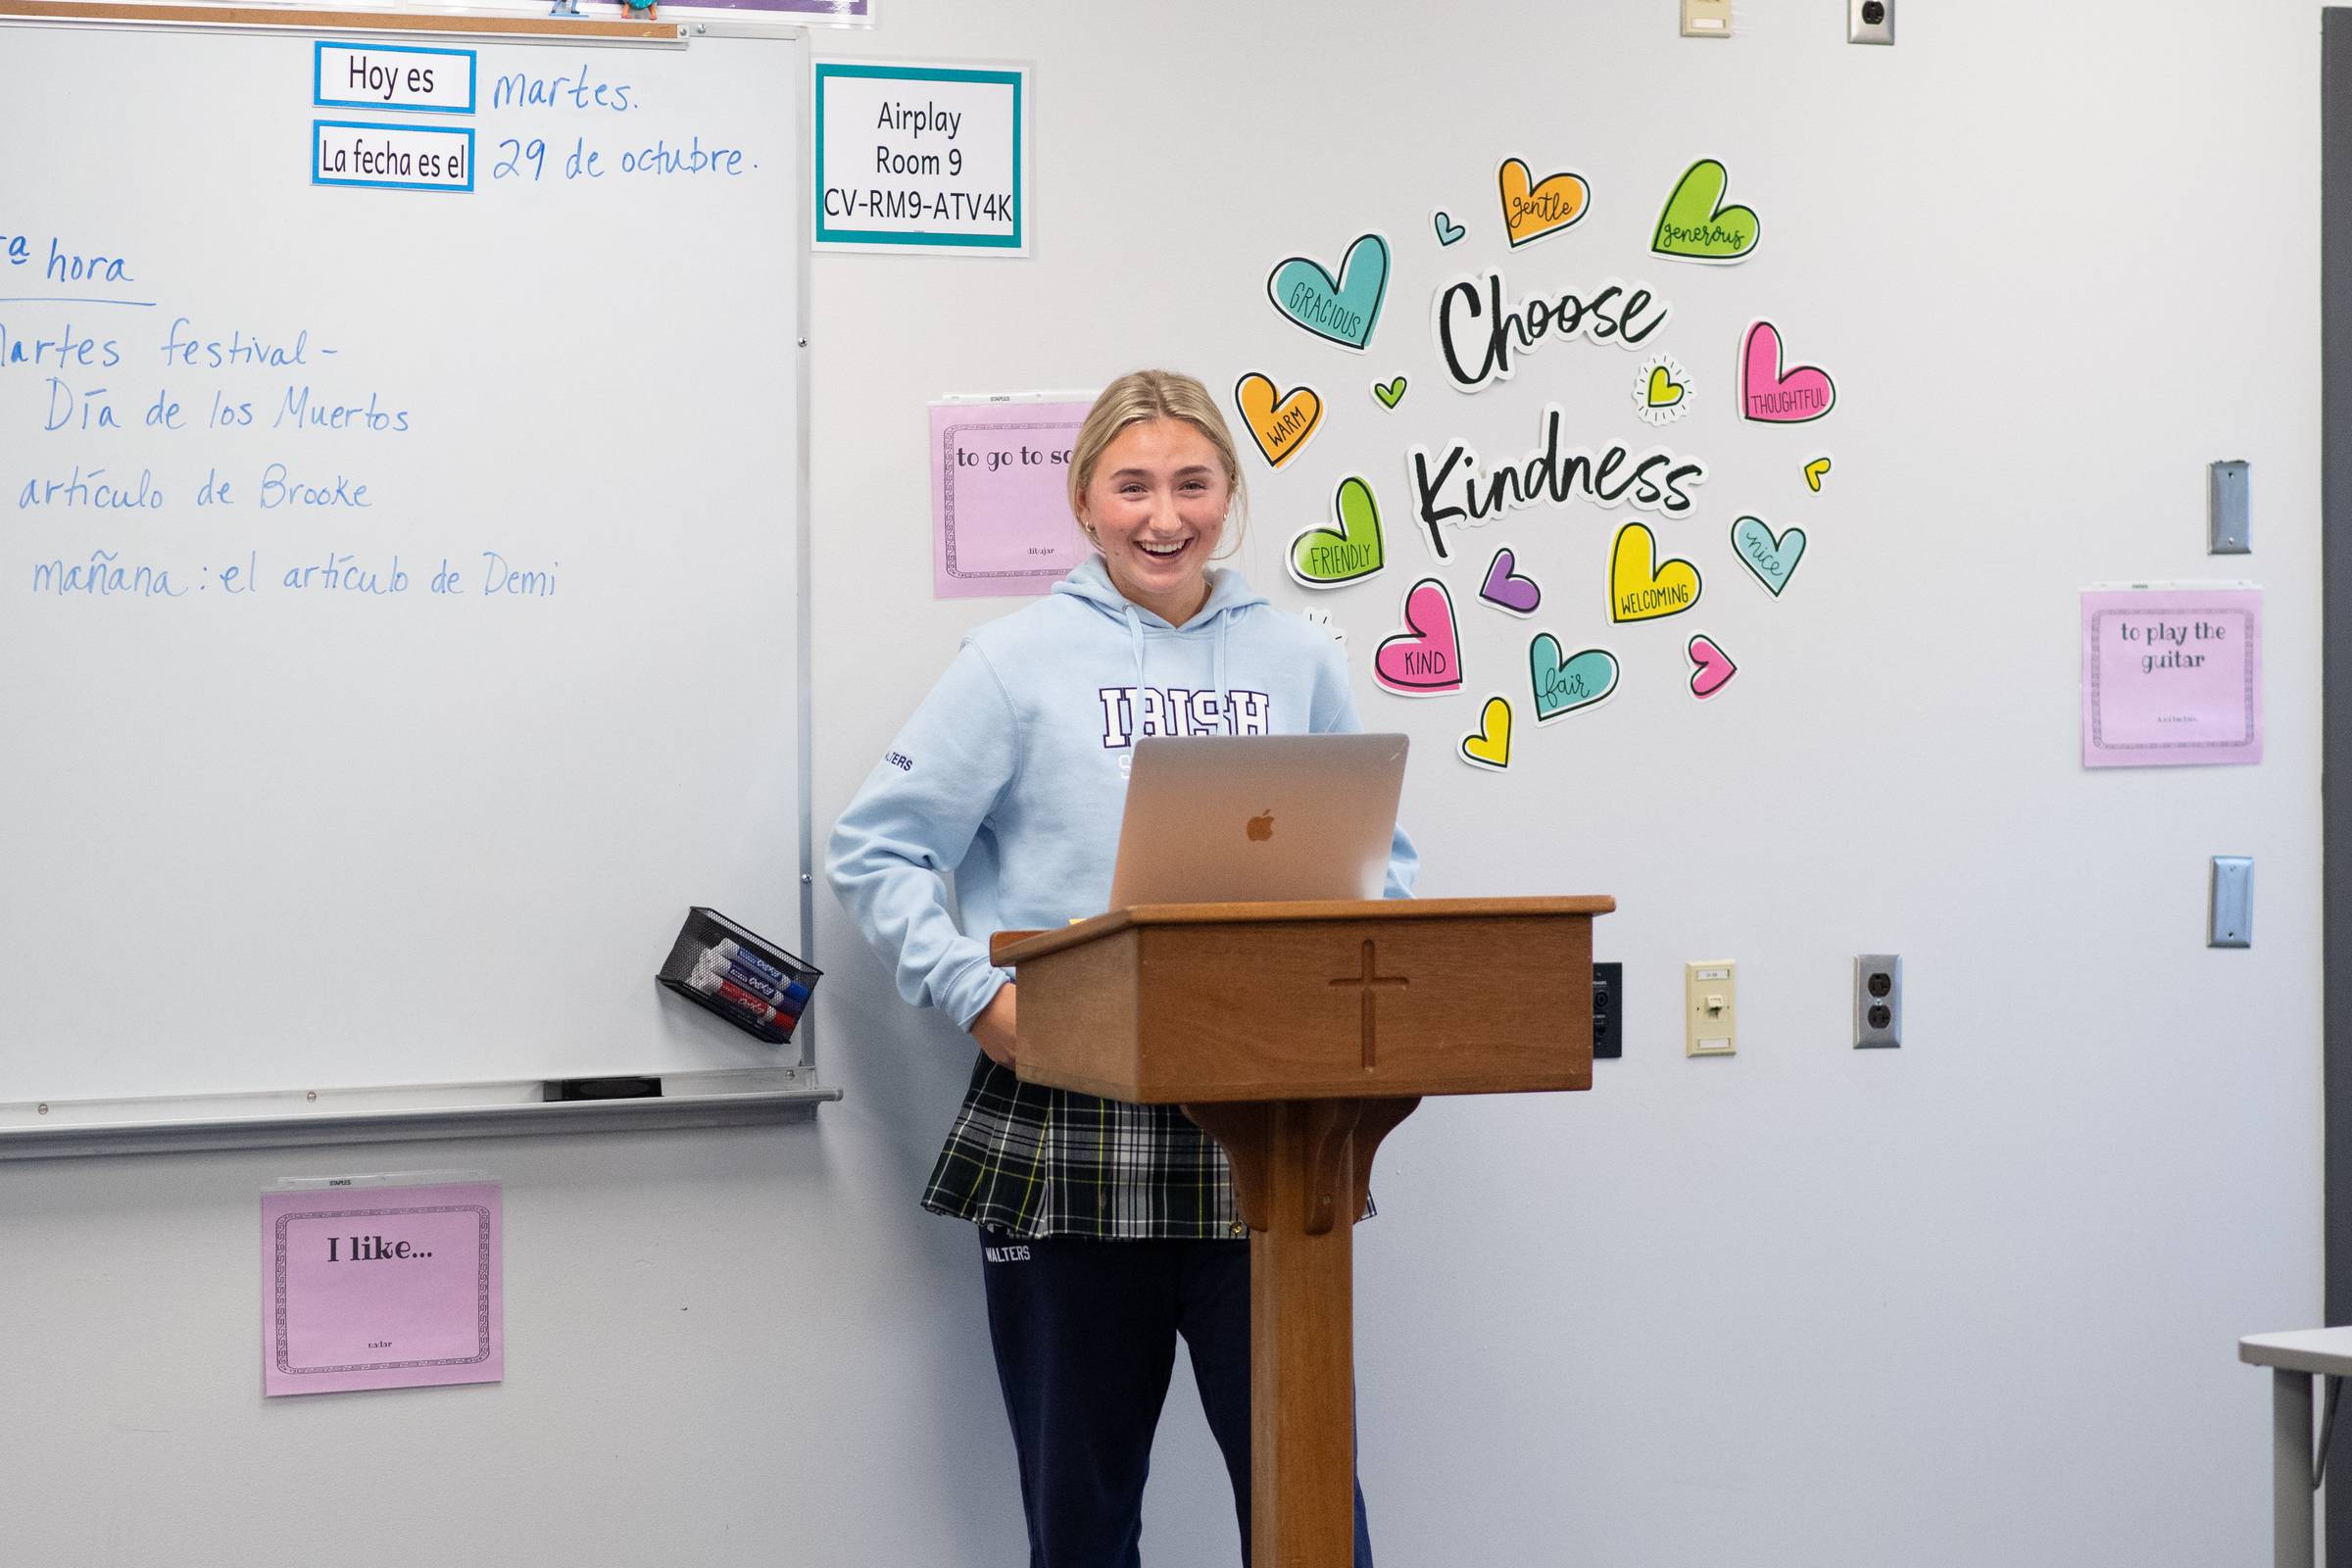 Hoy es martes.
La fecha es el 29 de octubre.
ª hora
artes festival-
Día de los Muertos
artículo de Brooke
mañana: el artículo de Demi
Airplay
Room 9
CV-RM9-ATV4K
STAPLES
to go to
dibujar
gentle
generous
GRACIOUS
Choose
THOUGHTFUL
WARM
Kindness
FRIENDLY
nice
WELCOMING
KIND
fair
IRISH
WALTERS
STAPLES
to play the
guitar
STAPLES
I like...
nadar
Expo
Expo
Expo